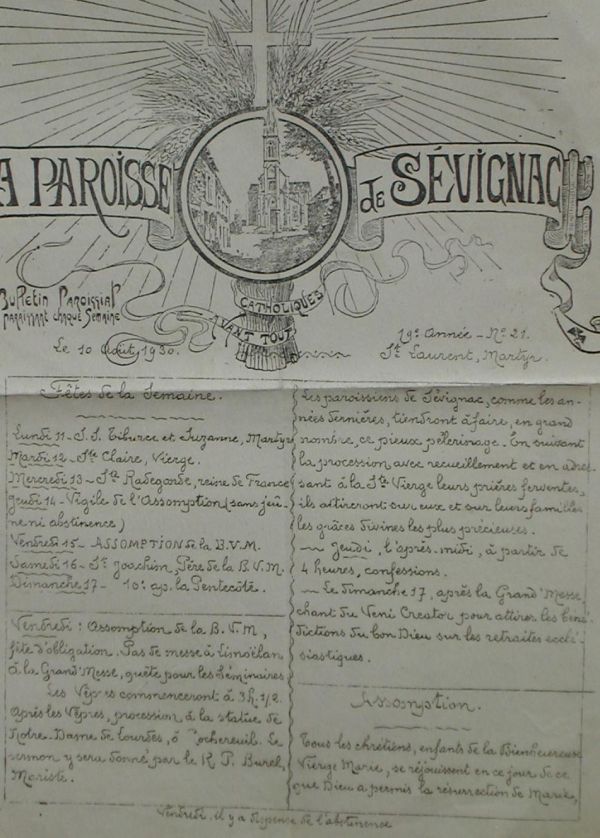 A PAROISSE de SÉVIGNAC
Bulletin Paroissial
paraissant chaque semaine
CATHOLIQUES
AVANT TOUT
Le 10 Août 1930.
19e Année - No 21.
St Laurent, Martyr.
Fêtes de la Semaine.
Lundi 11 - S.S. Tiburce et Suzanne, Martyrs
Mardi 12 - Ste Claire, Vierge.
Mercredi 13 - Ste Radegonde, reine de France
Jeudi 14 - Vigile de l'Assomption (sans jeû-
ne ni abstinence)
Vendredi 15 - ASSOMPTION de la B.V.M.
Samedi 16 - St Joachim, Père de la B.V.M.
Dimanche 17 - 10e ap. la Pentecôte.
Vendredi : Assomption de la B.V.M,
fête d'obligation. Pas de messe à Limoëlan
à la Grand'Messe, quête pour les Séminaires
Les Vêpres commenceront à 3h. 1/2.
Après les Vêpres, procession à la statue de
Notre-Dame de Lourdes, à Rochereuil. Le
sermon y sera donné par le R.P. Burel,
Mariste.
Les paroissiens de Sévignac, comme les an-
nées dernières, tiendront à faire, en grand
nombre, ce pieux pèlerinage. En suivant
la procession avec recueillement et en adres-
sant à la Ste Vierge leurs prières ferventes,
ils attireront sur eux et sur leurs familles
les grâces divines les plus précieuses.
~ Jeudi, l'après-midi, à partir de
4 heures, confessions.
~ Le dimanche 17, après la Grand'Messe,
chant du Veni Creator pour attirer les béné-
dictions du bon Dieu sur les retraites ecclé-
siastiques.
Assomption.
Tous les chrétiens, enfants de la Bienheureuse
Vierge Marie, se réjouissent en ce jour de ce
que Dieu a permis la résurrection de Marie,
Vendredi, il y a dispense de l'abstinence